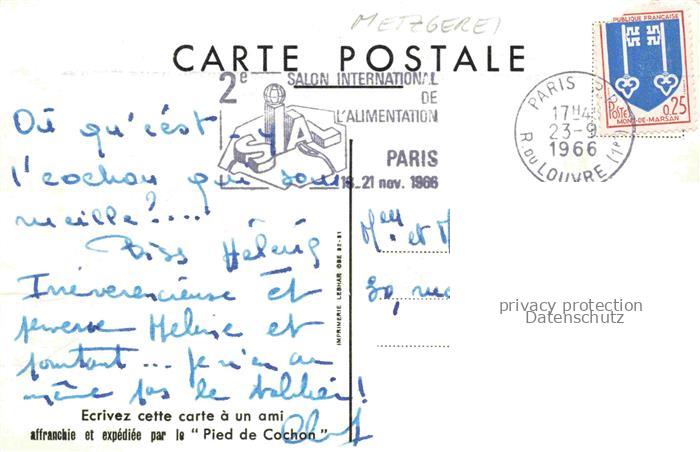 METZGEREI
CARTE POSTALE
2e SALON INTERNATIONAL
DE
L'ALIMENTATION
SIAL
PARIS
21 nov. 1966
PARIS
17H4
23-9
1966
R. DU LOUVRE (1er)
POSTES
0,25
MONT-DE-MARSAN
REPUBLIQUE FRANÇAISE
Où qu'c'est
l'cochon qui som
meille?....
Biss
Irrévérencieuse et
perverse et
pourtant... je n'ai
même pas le
et M
30, rue
IMPRIMERIE LEBHAR OBE 82-81
Ecrivez cette carte à un ami
affranchie et expédiée par le "Pied de Cochon"
privacy protection
Datenschutz